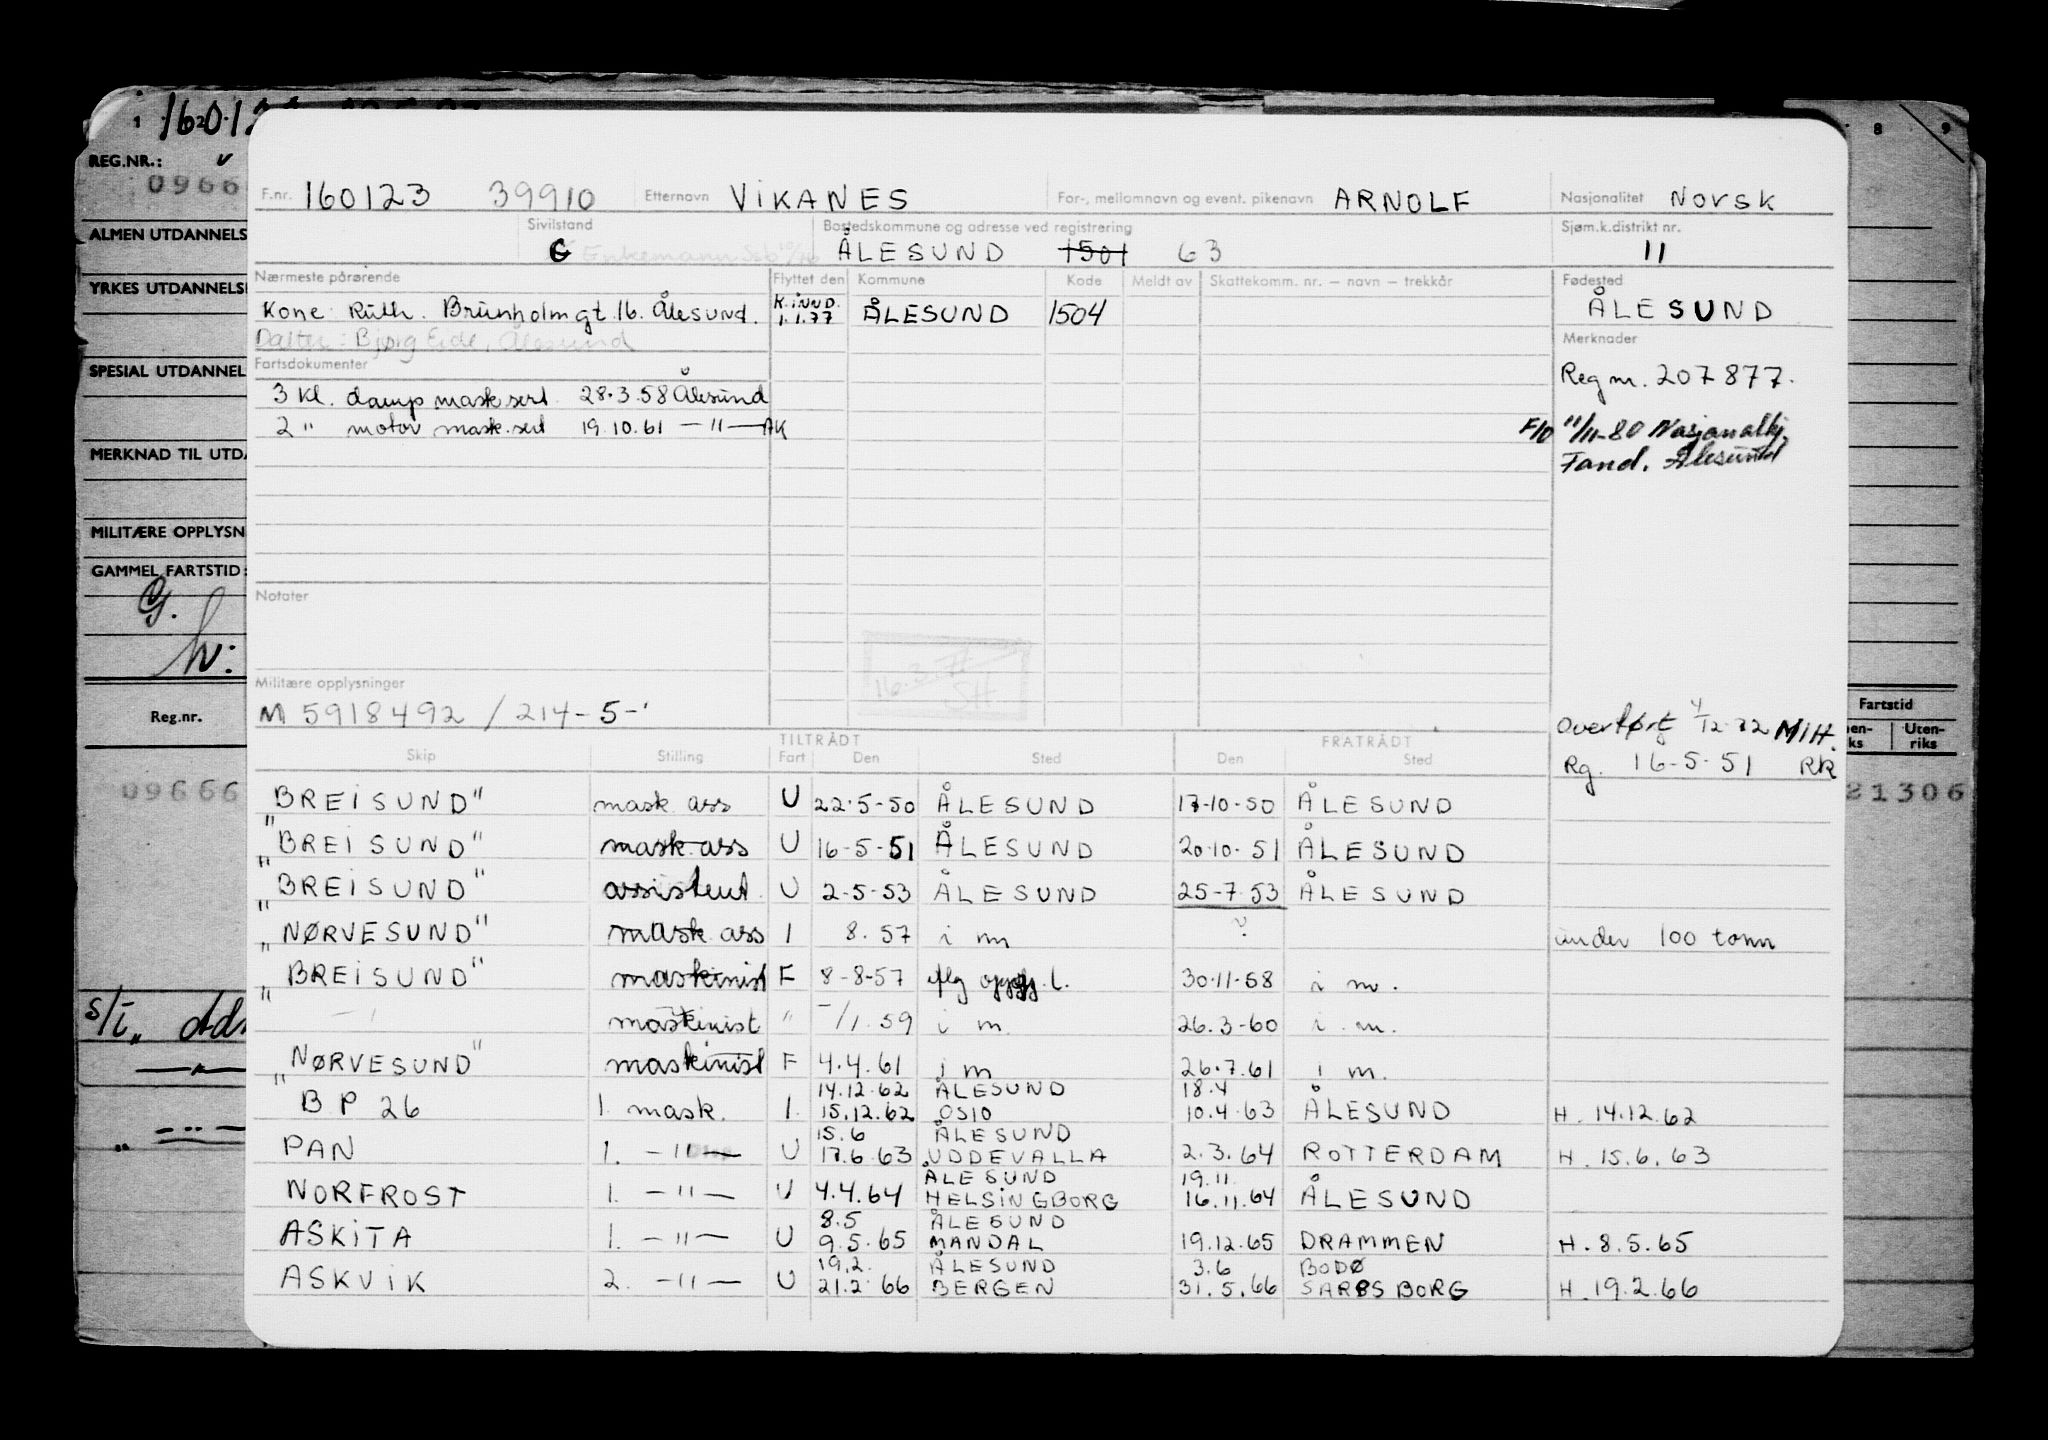 1 160123
REG.NR.: 0966
ALMEN UTDANNELS
YRKES UTDANNELS
SPESIAL UTDANNEL
MERKNAD TIL UTD
MILITÆRE OPPLYSN
GAMMEL FARTSTID:
G.
Reg.nr.
09666
8 9
Fartstid
Uten-
riks
21306
F.nr. 160123 39910 Etternavn VIKANES For-, mellomnavn og event. pikenavn ARNOLF Nasjonalitet Norsk
Sivilstand Bostedskommune og adresse ved registrering Sjøm.k.distrikt nr.
G Enkemann ÅLESUND 1501 63 11
Nærmeste pårørende Flyttet den Kommune Kode Meldt av Skattekomm. nr. – navn – trekkår Fødested
Kone: Ruth. Brunholmgt. 16. Ålesund. K.INND. 1.1.77 ÅLESUND 1504 ÅLESUND
Datter: Bjørg Eide, Ålesund Merknader
Fartsdokumenter
Reg nr. 207877.
3 Kl. damp mask sert. 28.3.58 Ålesund
2 " motor mask. sert 19.10.61 — " — AK
F/0 11/11-80 Nasjonalbj.
Tand. Ålesund
Notater
16.3.71
SH
Militære opplysninger
M 5918492 / 214-5-
Overført 4/12-72 MIH.
Rg. 16-5-51 RK
TILTRÅDT FRATRÅDT
Skip Stilling Fart Den Sted Den Sted
"BREISUND" mask. ass U 22-5-50 ÅLESUND 17-10-50 ÅLESUND
"BREISUND" mask. ass U 16-5-51 ÅLESUND 20-10-51 ÅLESUND
"BREISUND" assistent. U 2-5-53 ÅLESUND 25-7-53 ÅLESUND
"NØRVESUND" mask. ass I 8.57 i m ? under 100 tonn
"BREISUND" maskinist F 8-8-57 iflg oppg. l. 30-11-58 i m.
— " maskinist " -/1.59 i m. 26.3-60 i m.
"NØRVESUND" maskinist F 4.4.61 i m 26.7.61 i m.
14.12.62 ÅLESUND 18.4
B P 26 1. mask. I. 15.12.62 OSLO 10.4.63 ÅLESUND H. 14.12.62
15.6 ÅLESUND
PAN 1. — " — U 17.6.63 UDDEVALLA 2.3.64 ROTTERDAM H. 15.6.63
ÅLESUND 19.11.
NORFROST 1. — " — U 4.4.64 HELSINGBORG 16.11.64 ÅLESUND
8.5 ÅLESUND
ASKITA 1. — " — U 9.5.65 MANDAL 19.12.65 DRAMMEN H. 8.5.65
19.2. ÅLESUND 3.6 BODØ
ASKVIK 2. — " — U 21.2.66 BERGEN 31.5.66 SARPSBORG H. 19.2.66